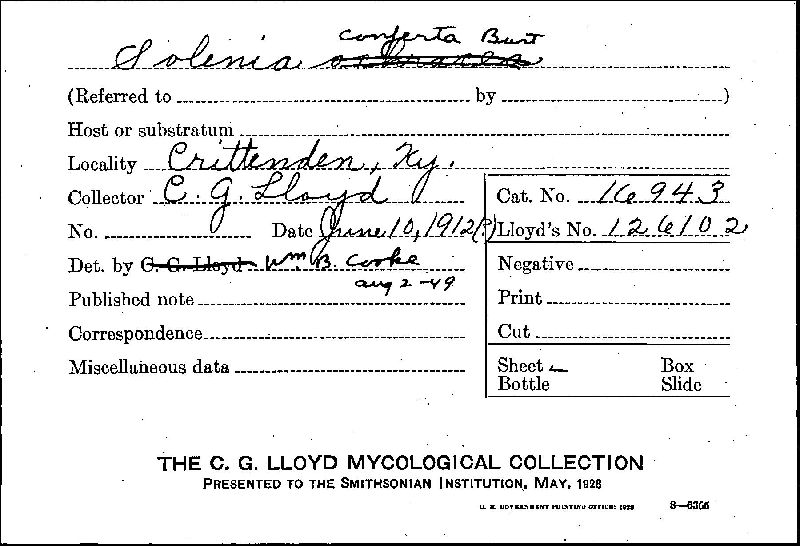 conferta Burt
Solenia ochracea
(Referred to by )
Host or substratum
Locality Crittenden, Ky.
Collector C. G. Lloyd
Cat. No. 16943
No. Date June 10, 1912(?)
Lloyd's No. 126102
Det. by C. G. Lloyd Wm B. Cooke
Negative
aug 2 - 49
Published note
Print
Correspondence
Cut
Miscellaneous data
Sheet Box
Bottle Slide
THE C. G. LLOYD MYCOLOGICAL COLLECTION
PRESENTED TO THE SMITHSONIAN INSTITUTION, MAY, 1928
U. S. GOVERNMENT PRINTING OFFICE: 1928 8—6355